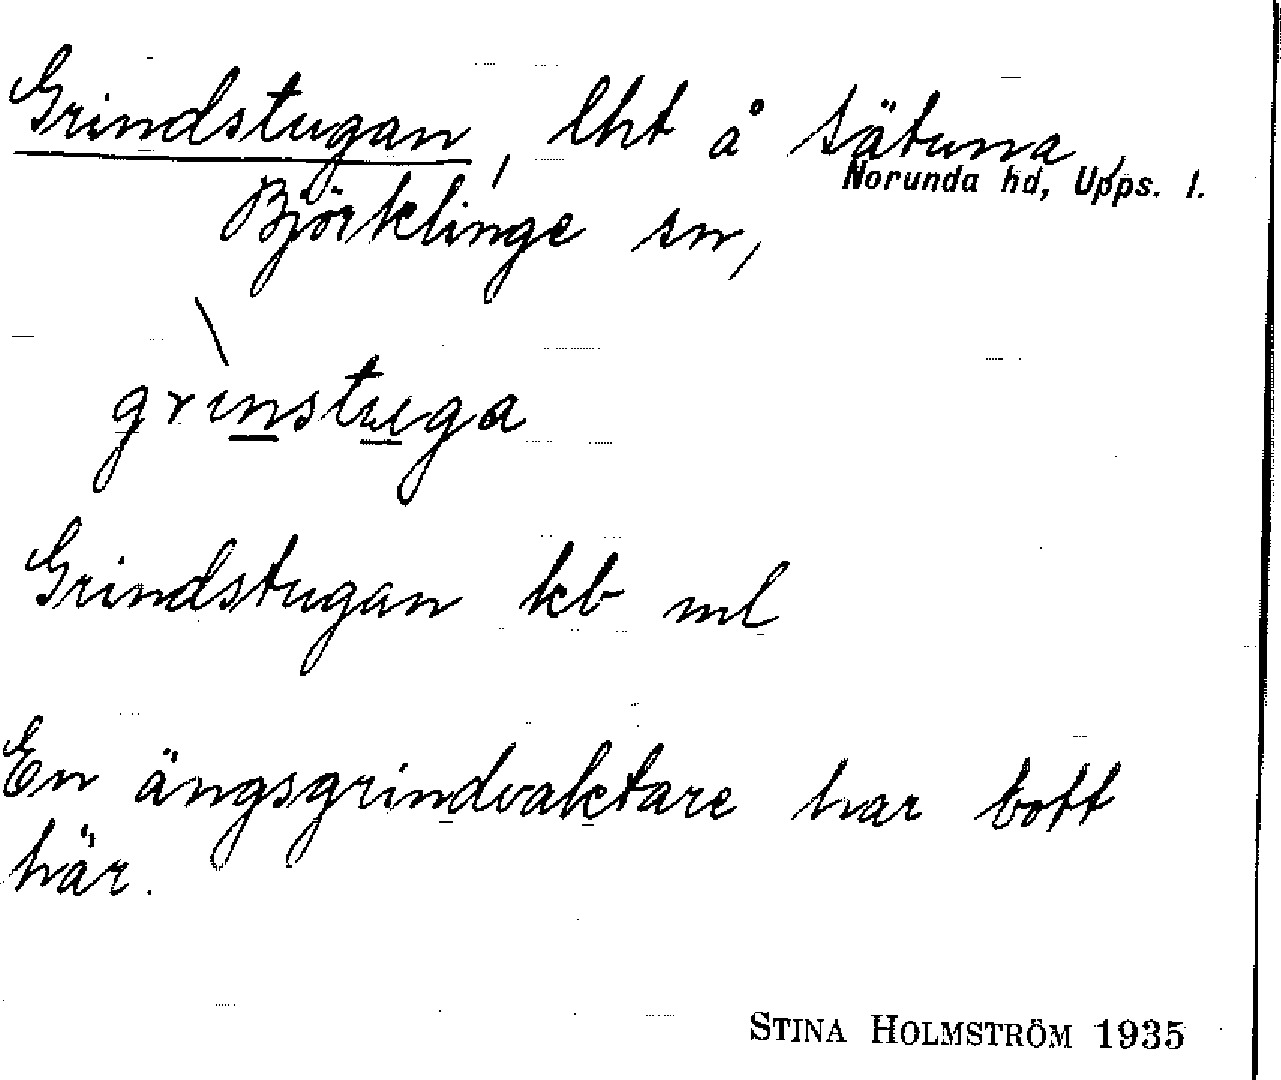 Grindstugan, lht å Sätuna,
Björklinge sn, Norunda hd, Upps. l.
grìnstuga
Grindstugan kb ml
En ängsgrindvaktare har bott
här.
STINA HOLMSTRÖM 1935